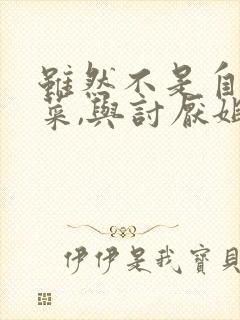 雖然不是自
菜,與討厭姐
伊伊是我寶貝